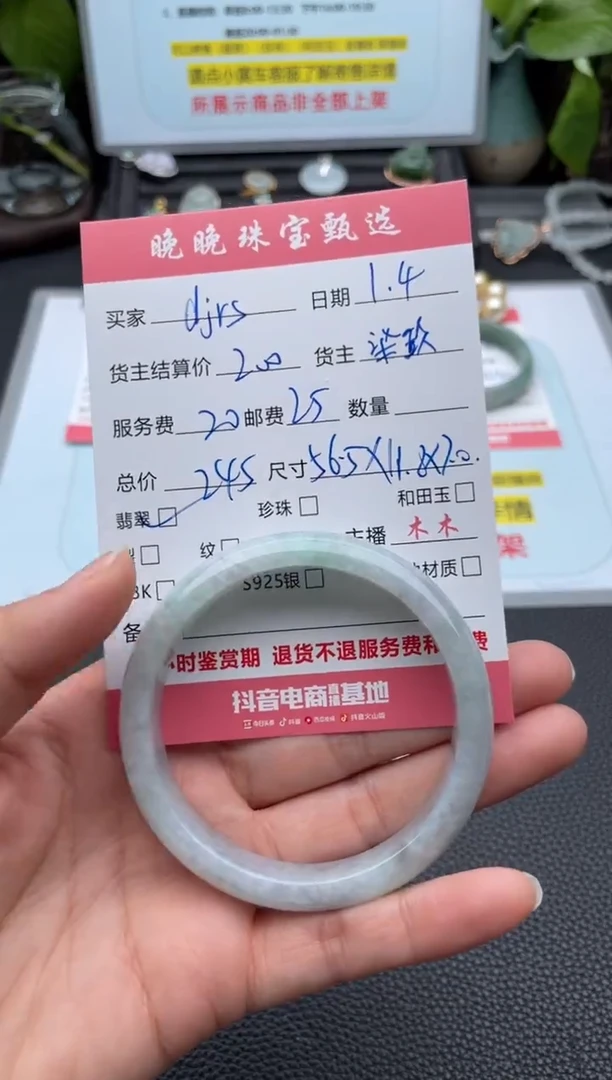 请点小黄车客服了解寄售详情
所展示商品非全部上架
晚晚珠宝甄选
买家 djrs 日期 1.4
货主结算价 200 货主
服务费 20 邮费 25 数量
总价 245 尺寸 56.5X11.8X7.0.
翡翠 珍珠 和田玉
纹 主播 木木
S925银 材质
备
小时鉴赏期 退货不退服务费和 费
抖音电商直播基地
今日头条 抖音 西瓜视频 抖音火山版
详情
架